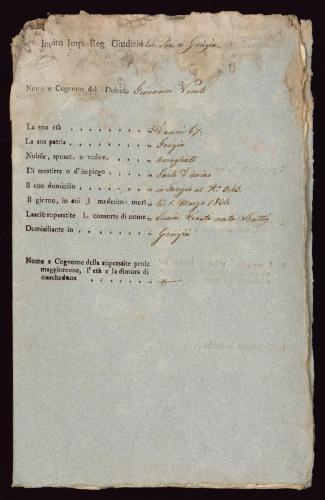 Inclito Imp. Reg. Giudizio Civ. Prov. di Gorizia.
Nome e Cognome del Defonto Giovanni
La sua età . . . . . . . . . . d'anni 67.
La sua patria . . . . . . . . . Gorizia
Nobile, sposat. o vedov. . . . . . . Amogliato
Di mestiere o d'impiego . . . . . . Sarto
Il suo domicilio . . . . . . . . in Gorizia al No. 343.
Il giorno, in cui il medesimo morì li 1 Marzo 1833.
Lasciò superstite l. consorte di nome Lucia nata
Domiciliante in . . . . . . . . Gorizia
Nome e Cognome della superstite prole
maggiorenne, l'età e la dimora di
ciascheduna . . . . . . .